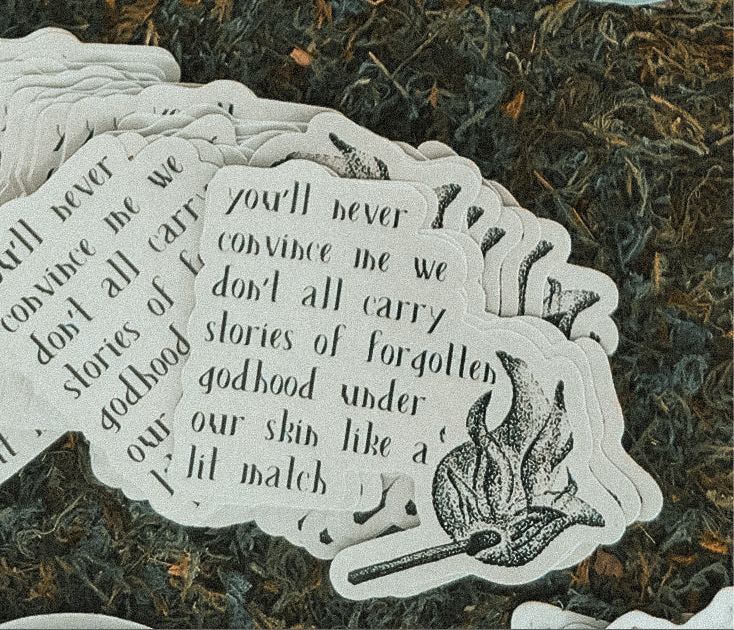 you'll never
convince me we
don't all carry
stories of forgotten
godhood under
our skin like a
lit match
u'll never
convince me we
don't all carry
stories of f
godhood
our
l